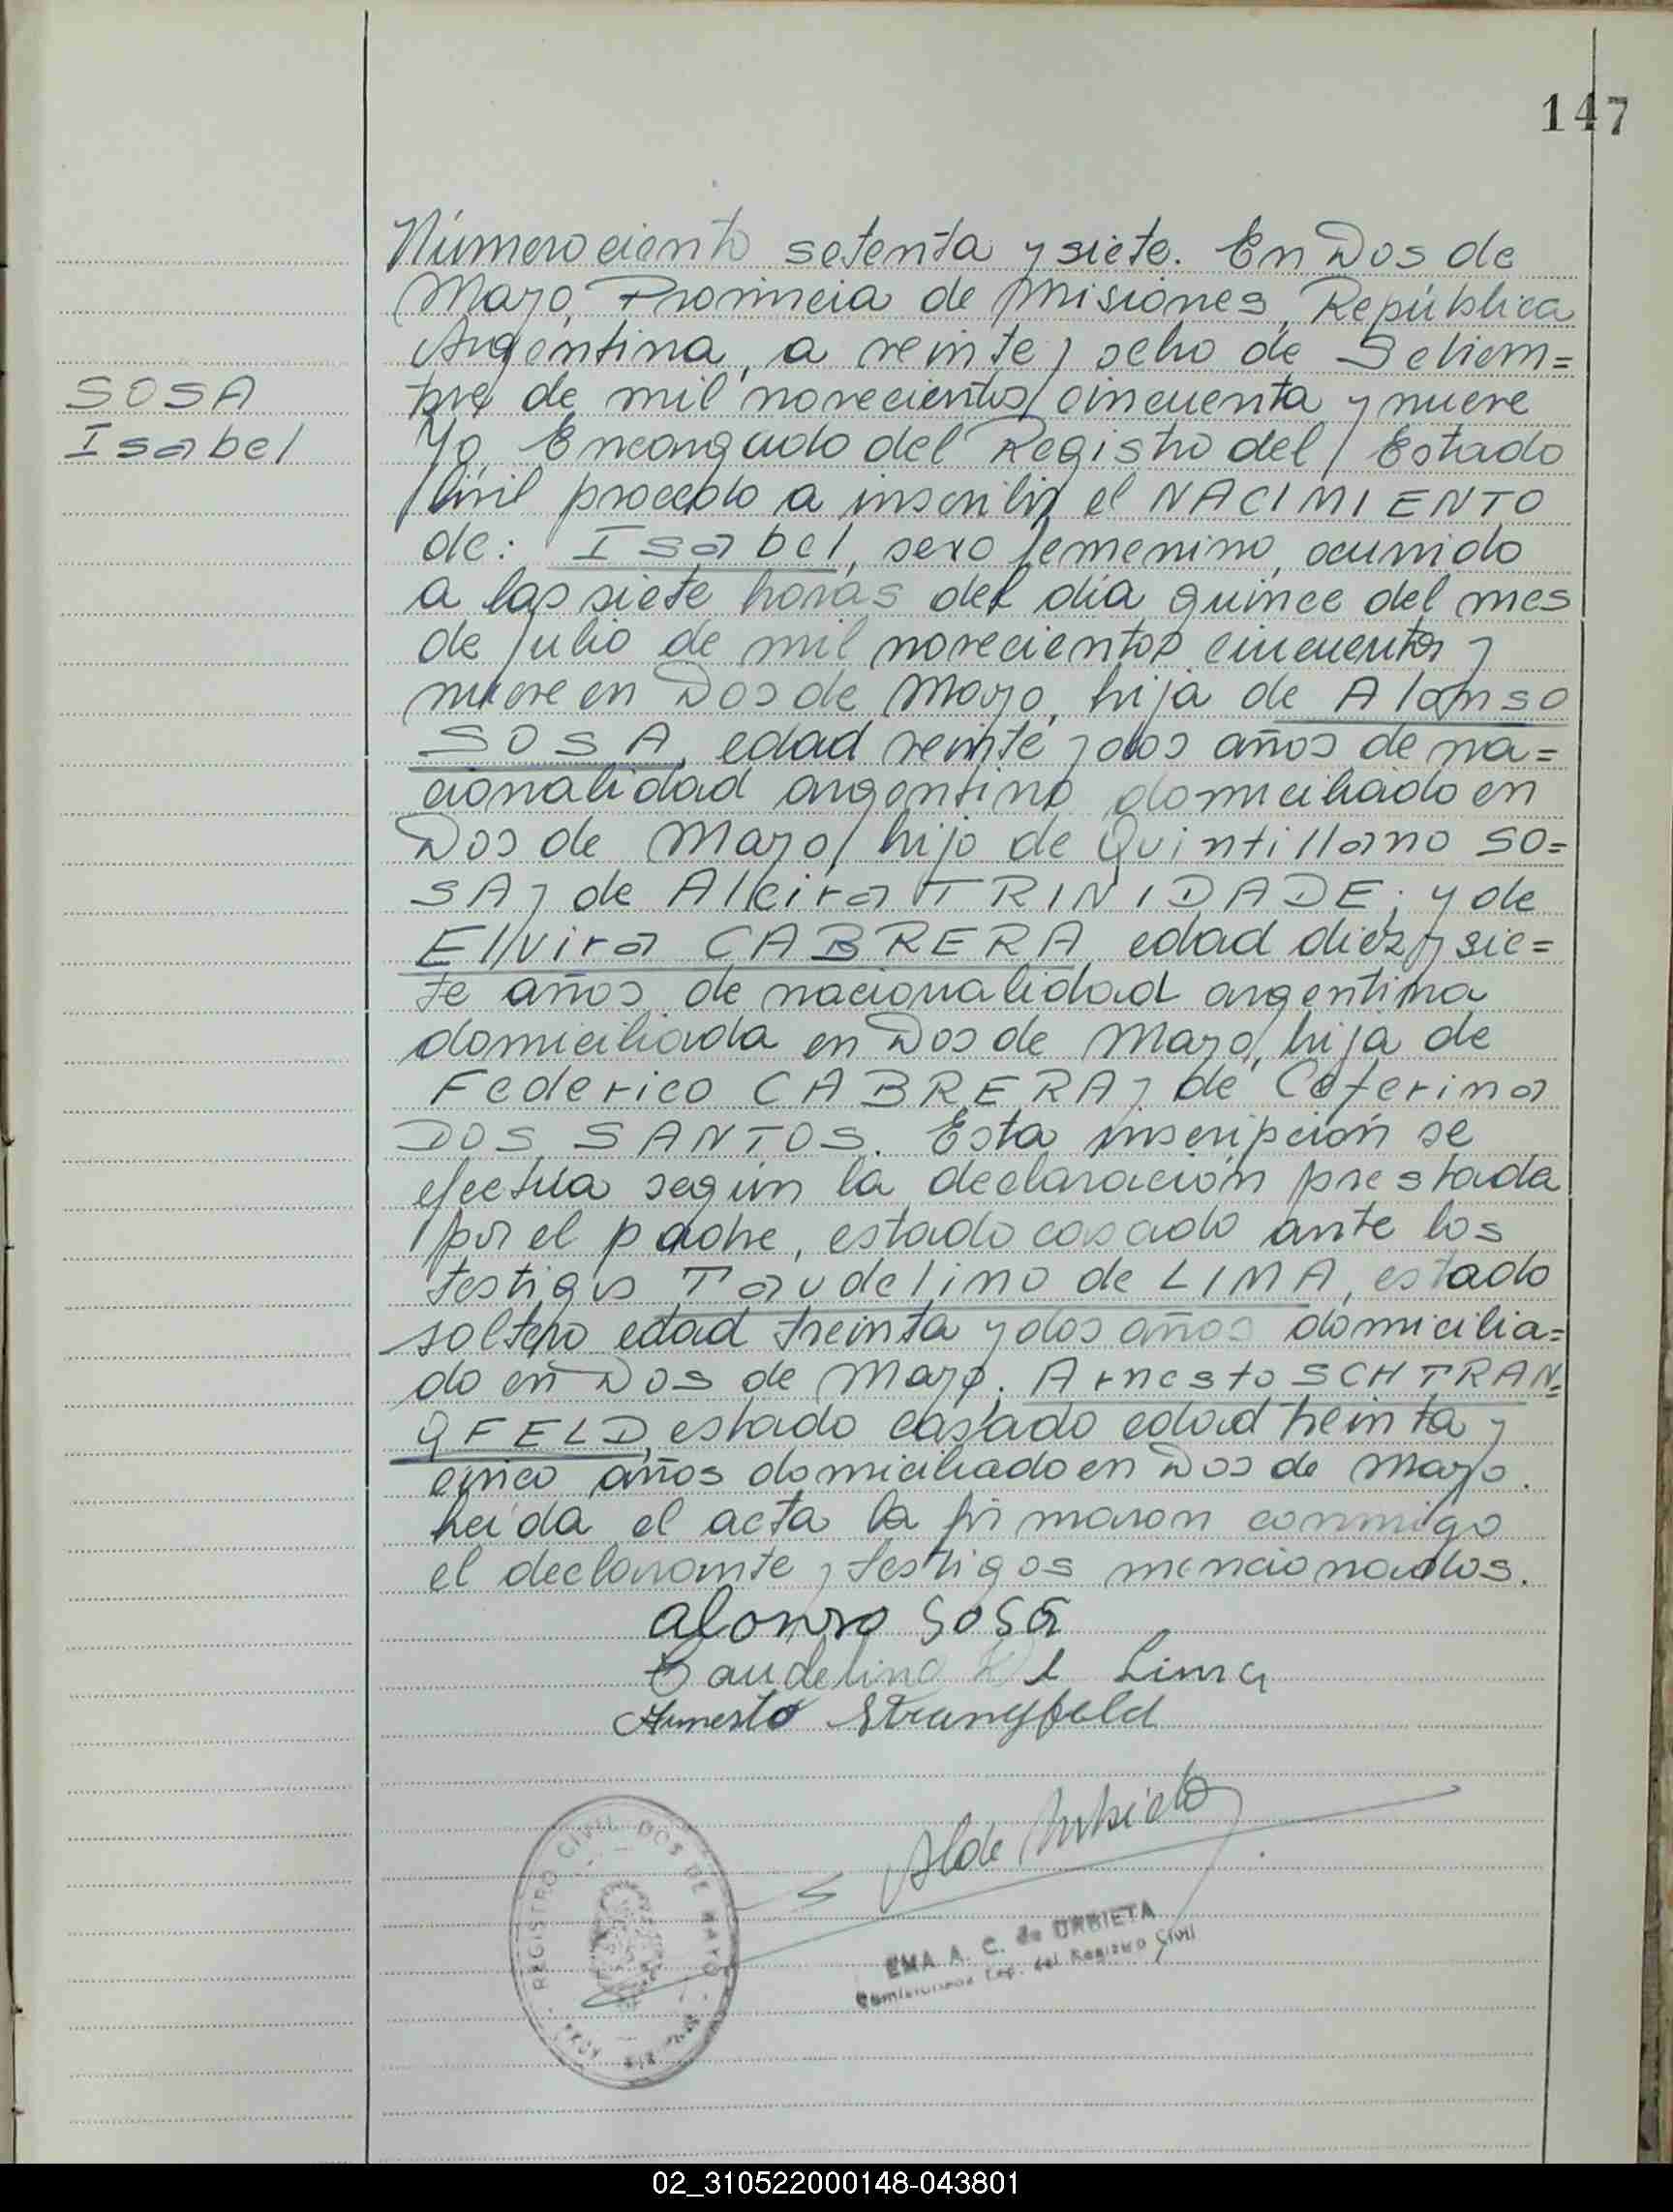 147
SOSA
Isabel
Número ciento setenta y siete. En Dos de
Mayo, Provincia de Misiones, República
Argentina, a veinte y ocho de Setiem=
bre de mil novecientos cincuenta y nueve
Yo, Encargado del Registro del Estado
Civil procedo a inscribir el NACIMIENTO
de: Isabel, sexo femenino, ocurrido
a las siete horas del día quince del mes
de Julio de mil novecientos cincuenta y
nueve en Dos de Mayo, hija de Alonso
SOSA, edad veinte y dos años de na=
cionalidad argentino domiciliado en
Dos de Mayo, hijo de Quintillano SO=
SA y de Alcira TRINIDADE; y de
Ellvira CABRERA edad diez y sie=
te años de nacionalidad argentina
domiciliada en Dos de Mayo, hija de
Federico CABRERA y de Ceferina
DOS SANTOS. Esta inscripción se
efectúa según la declaración prestada
por el padre, estado casado ante los
testigos Taudelino de LIMA, estado
soltero edad treinta y dos años domicilia=
do en Dos de Mayo. Arnesto SCHTRAN=
GFELD, estado casado edad treinta y
cinco años domiciliado en Dos de Mayo.
Leída el acta la firmaron conmigo
el declarante y testigos mencionados.
Alonso Sosa
Taudelino de Lima
Arnesto Strangfeld
A C de Urbieta
REGISTRO CIVIL DOS DE MAYO
EMA A. C. de URBIETA
del Registro Civil
02_310522000148-043801